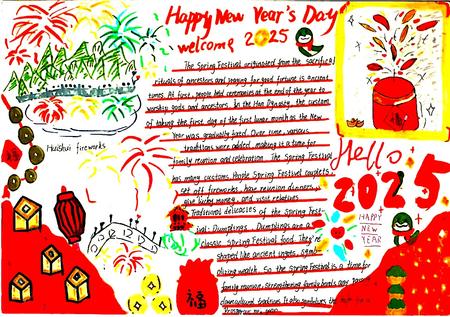 Happy New Year's Day
welcome 2025
The Spring Festival originated from the sacrificial
rituals of ancestors and praying for good fortune in ancient
times. At first, people held ceremonies at the end of the year to
worship gods and ancestors. In the Han Dynasty, the custom
of taking the first day of the first lunar month as the New
Year was gradually fixed. Over time, various
traditions were added, making it a time for
family reunion and celebration. The Spring Festival
has many customs. People Spring Festival couplets,
set off fireworks, have reunion dinners,
give lucky money, and visit relatives
Traditional delicacies of the Spring Fest-
ival: Dumplings. Dumplings are a
classic Spring Festival food. They're
shaped like ancient ingots, symb-
olizing wealth. So the Spring Festival is a time for
family reunion, strengthening family bonds and
traditions. It also symbolizes the
Huishui fireworks
福
Hello
2025
HAPPY
NEW
YEAR
福